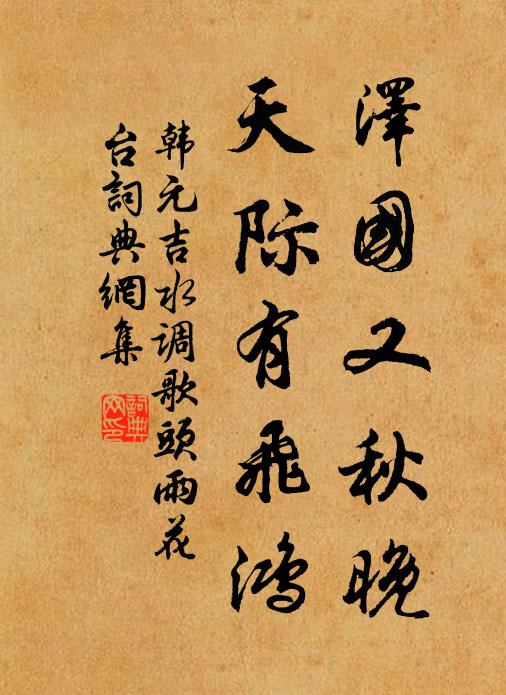 澤國又秋晚
天际有飛鴻
韩元吉水调歌頭雨花
台詞典網集
詞典
网印